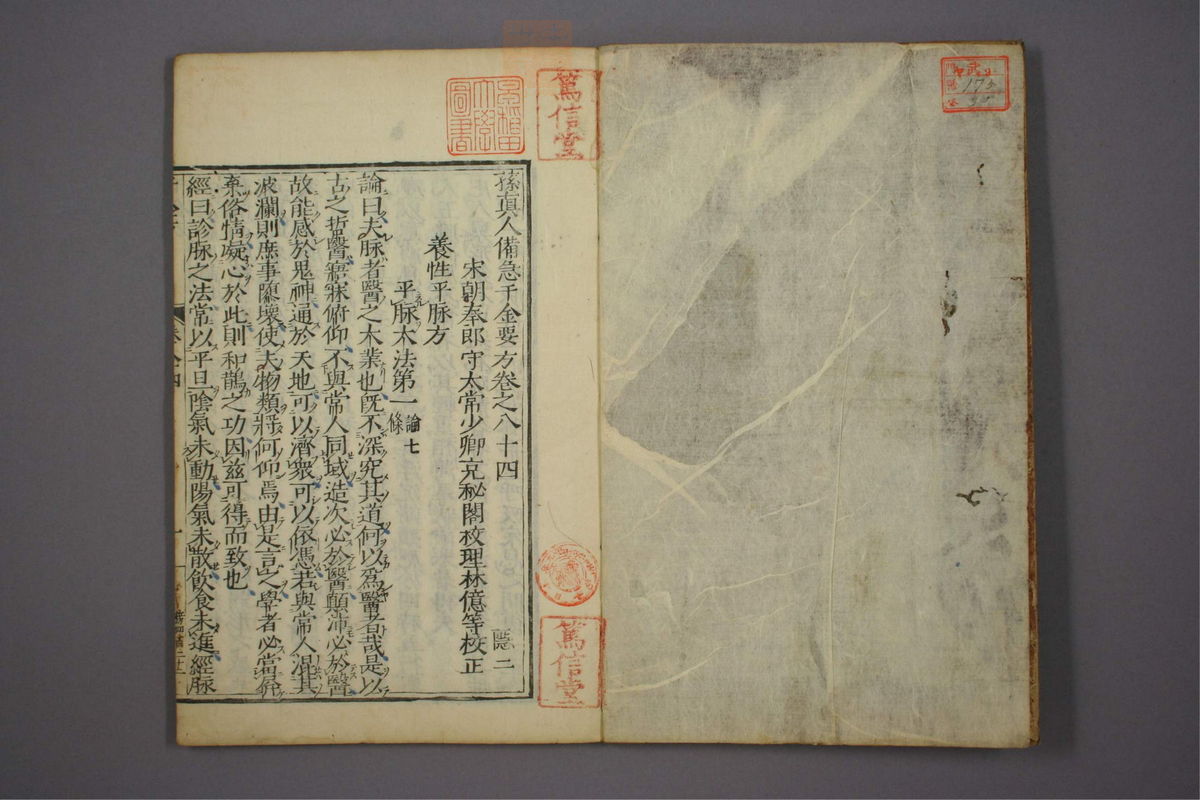 孫真人備急千金要方卷之八十四
隱二
宋朝奉郎守太常少卿充秘閣校理林億等校正
養性平脉方
平脉大法第一
論七
條
論曰夫脉者醫之大業也旣不深究其道何以爲醫者哉是以
古之哲醫寤寐俯仰不與常人同域造次必於醫顛沛必於醫
故能感於鬼神通於天地可以濟衆可以依憑若與常人混其
波瀾則庶事隳壞使夫物類將何仰焉由是言之學者必當屛
棄俗情凝心於此則和鵲之功因茲可得而致也
經曰診脉之法常以平旦陰氣未動陽氣未散飮食未進經脉
篤信堂
篤信堂
圖書
175